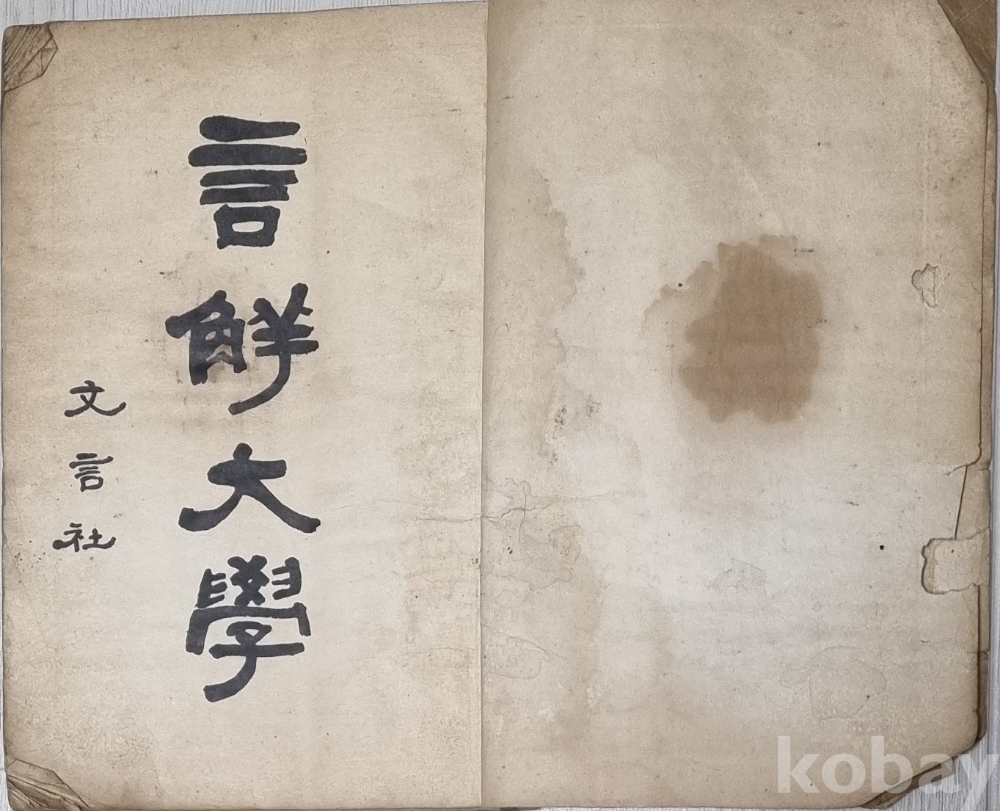 言觧大學
文言社
kobay